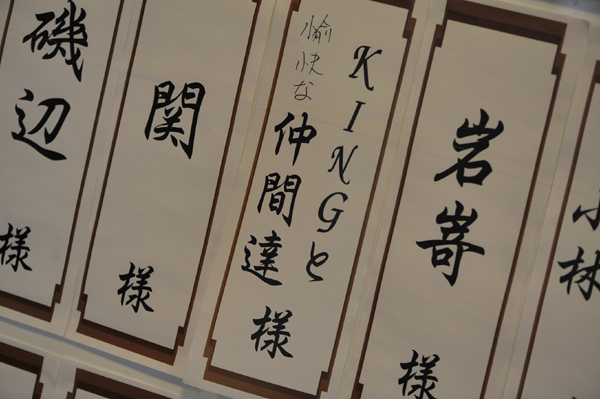 小林
岩嵜 様
KINGと
愉快な仲間達 様
関 様
磯辺 様